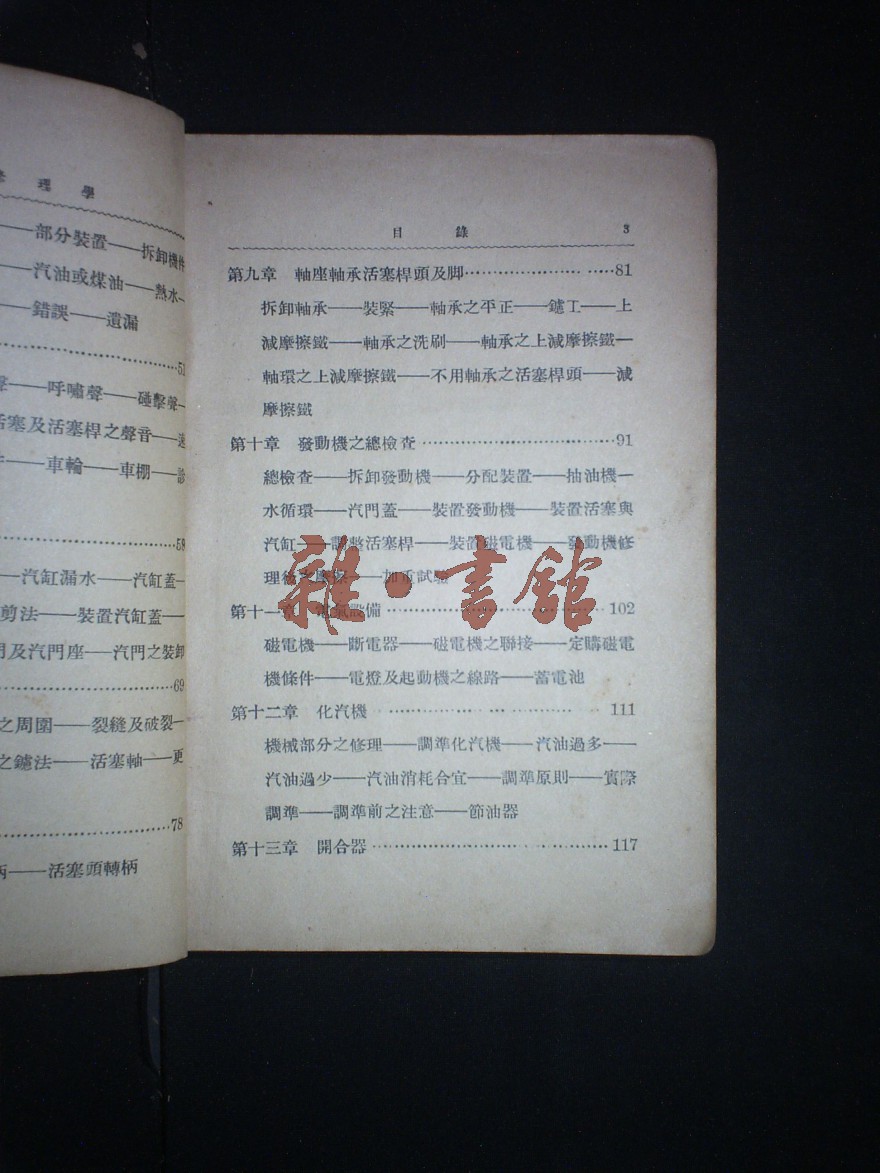 理學
——部分裝置——拆卸機件
——汽油或煤油——熱水—
——錯誤——遺漏
51
聲——呼嘯聲——碰擊聲—
活塞及活塞桿之聲音——速
——車輪——車棚——診
58
——汽缸漏水——汽缸蓋—
剪法——裝置汽缸蓋—
門及汽門座——汽門之裝卸
69
之周圍——裂縫及破裂—
之鑢法——活塞軸——更
78
柄——活塞頭轉柄
目錄 3
第九章 軸座軸承活塞桿頭及脚……81
拆卸軸承——裝緊——軸承之平正——鑢工——上
減摩擦鐵——軸承之洗刷——軸承之上減摩擦鐵—
軸環之上減摩擦鐵——不用軸承之活塞桿頭——減
摩擦鐵
第十章 發動機之總檢查……91
總檢查——拆卸發動機——分配裝置——抽油機—
水循環——汽門蓋——裝置發動機——裝置活塞與
汽缸——調整活塞桿——裝置磁電機——發動機修
理後之摩擦——加重試驗
第十一章 電氣設備……102
磁電機——斷電器——磁電機之聯接——定購磁電
機條件——電燈及起動機之線路——蓄電池
第十二章 化汽機……111
機械部分之修理——調準化汽機——汽油過多——
汽油過少——汽油消耗合宜——調準原則——實際
調準——調準前之注意——節油器
第十三章 開合器……117
雜·書館